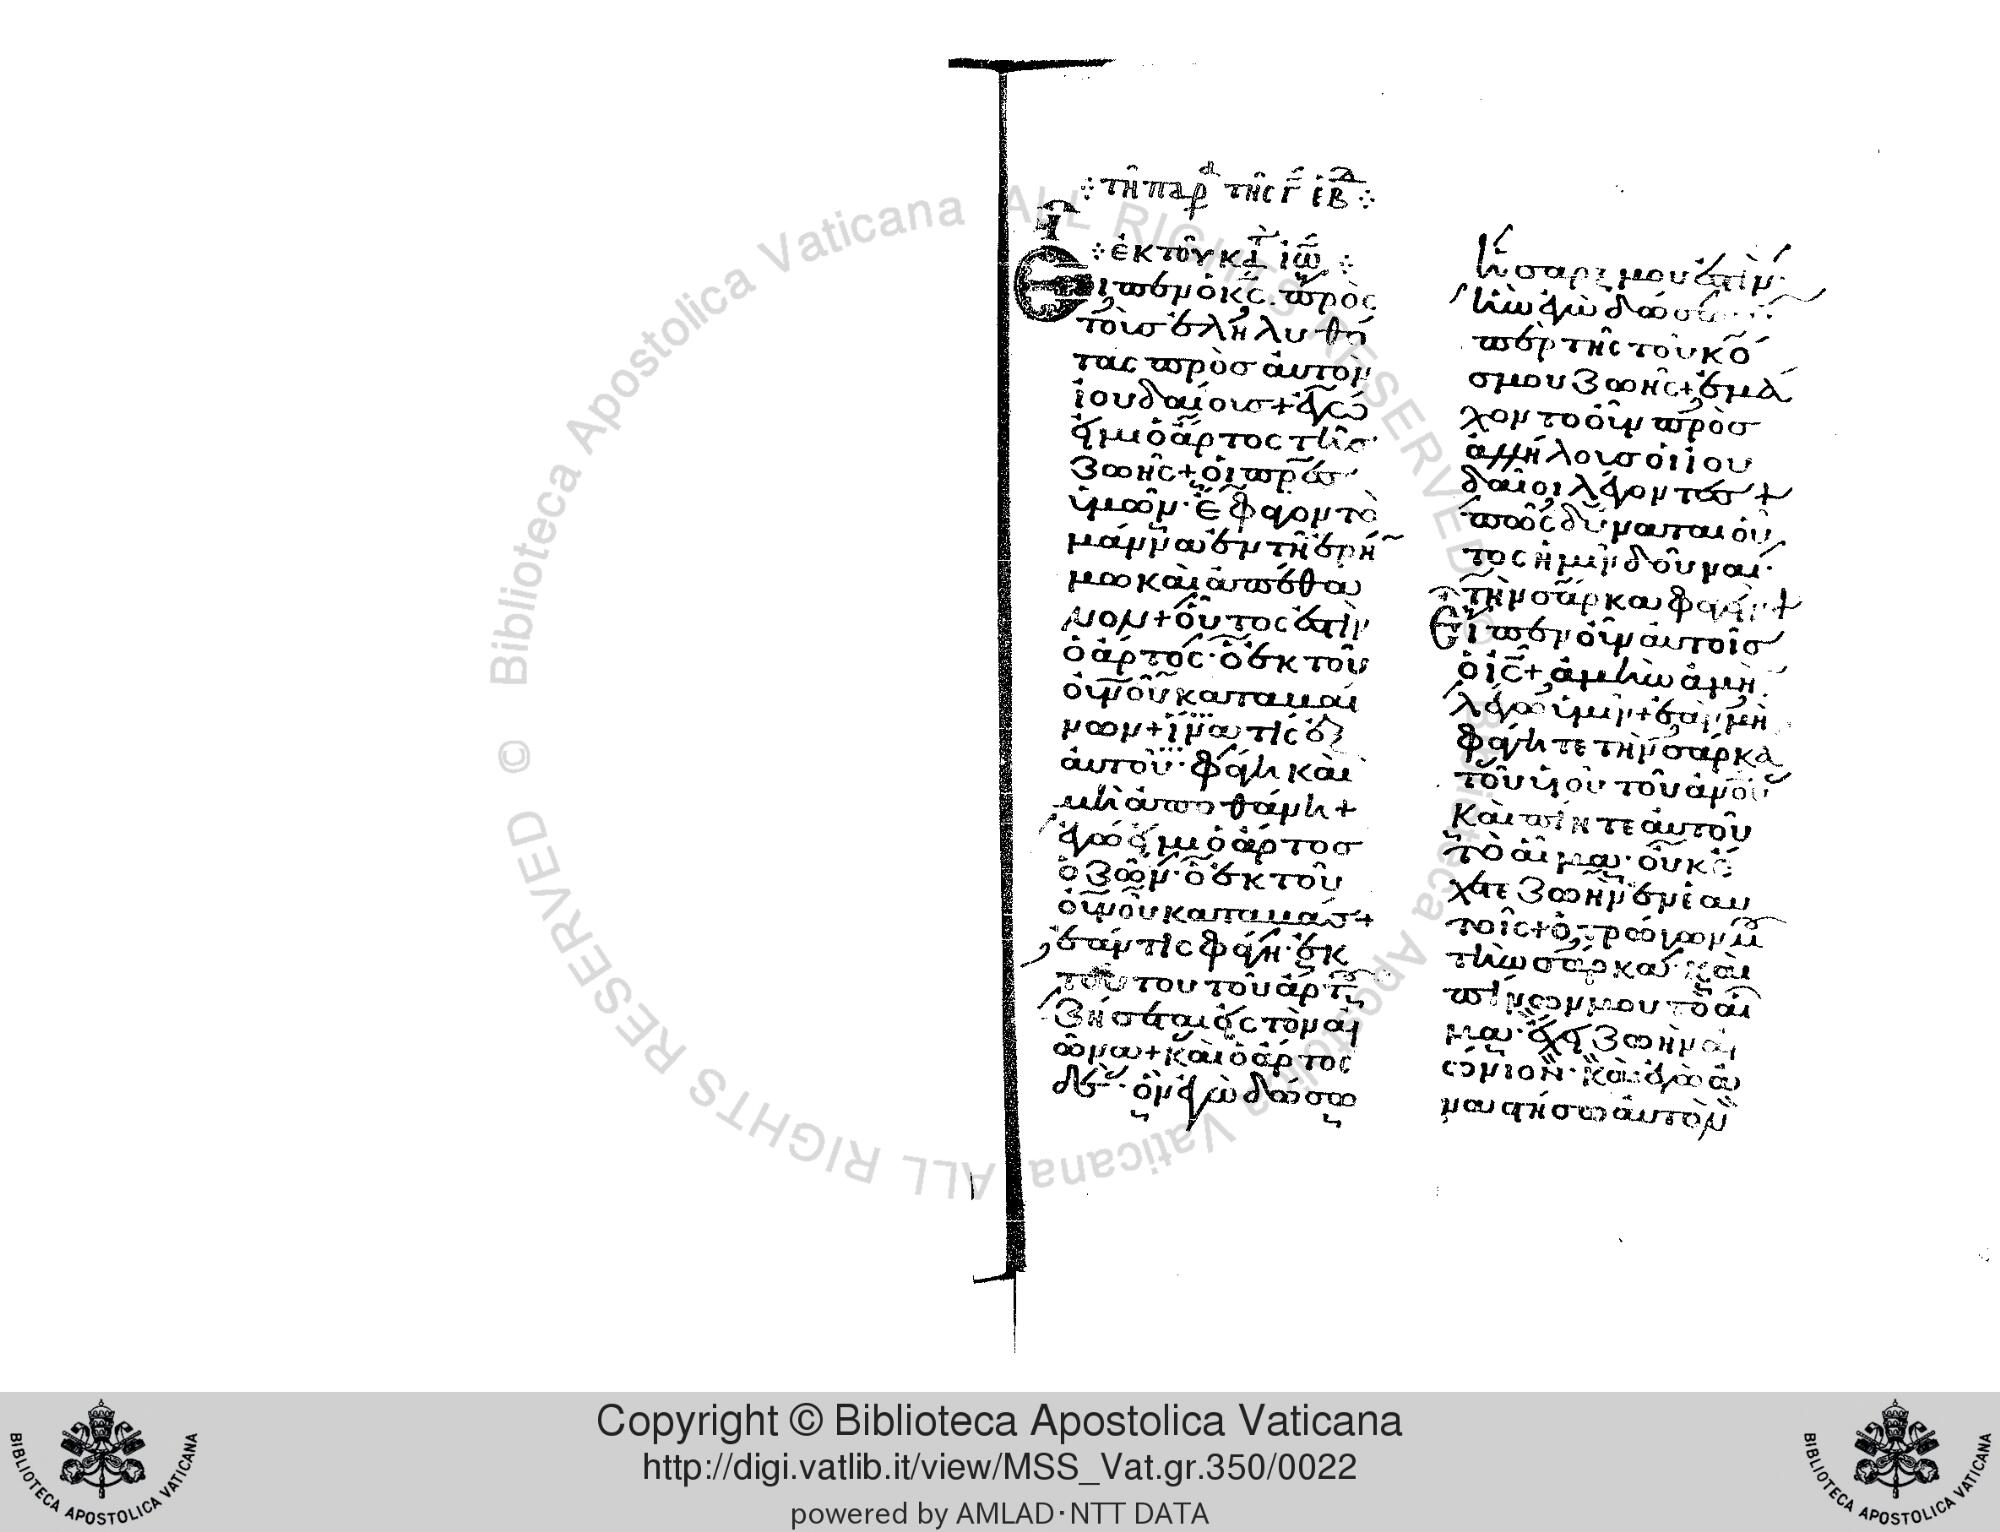 τῆ παρ τῆς γ ἑβ
ἐκ τοῦ κατ ἰω
Εἶπεν ὁ κς πρὸς
τοὺς ἐληλυθό
τας πρὸς αὐτὸν
ἰουδαίους + ἐγώ
εἰμι ὁ ἄρτος τῆς
ζωῆς + οἱ πρες
ὑμῶν · ἔφαγον τὸ
μάννα ἐν τῆ ἐρή
μω καὶ ἀπέθα
νον + οὗτος ἐστὶν
ὁ ἄρτος · ὁ ἐκ τοῦ
οὐνοῦ καταβαί
νων + ἵνα τὶς ἐξ
αὐτοῦ · φάγη καὶ
μὴ ἀποθάνη +
ἐγώ εἰμι ὁ ἄρτος
ὁ ζῶν · ὁ ἐκ τοῦ
οὐνοῦ καταβάς +
ἐάν τις φάγη · ἐκ
τούτου τοῦ ἄρτου
ζήσεται εἰς τὸν αἰ
ῶνα + καὶ ὁ ἄρτος
δὲ · ὃν ἐγὼ δώσω
ἡ σάρξ μου ἐστίν ·
ἣν ἐγὼ δώσω
ὑπὲρ τῆς τοῦ κό
σμου ζωῆς + ἐμά
χοντο οὖν πρὸς
ἀλλήλους οἱ ἰου
δαῖοι λέγοντες +
πῶς δύναται οὗ
τος ἡμῖν δοῦναι ·
τὴν σάρκα φαγεῖν +
Εἶπεν οὖν αὐτοῖς
ὁ ις + ἀμὴν ἀμὴν
λέγω ὑμῖν + ἐὰν μὴ
φάγητε τὴν σάρκα
τοῦ υἱοῦ τοῦ ἀνου
καὶ πίητε αὐτοῦ
τὸ αἷμα · οὐκ ἔ
χετε ζωὴν ἐν ἑαυ
τοῖς + ὁ τρώγων μου
τὴν σάρκα · καὶ
πίνων μου τὸ αἷ
μα · ἔχει ζωὴν αἰ
ώνιον · καὶ ἐγὼ ἀ
ναστήσω αὐτὸν
Copyright © Biblioteca Apostolica Vaticana
http://digi.vatlib.it/view/MSS_Vat.gr.350/0022
powered by AMLAD·NTT DATA
BIBLIOTECA APOSTOLICA VATICANA
BIBLIOTECA APOSTOLICA VATICANA
© Biblioteca Apostolica Vaticana ALL RIGHTS RESERVED © Biblioteca Apostolica Vaticana ALL RIGHTS RESERVED